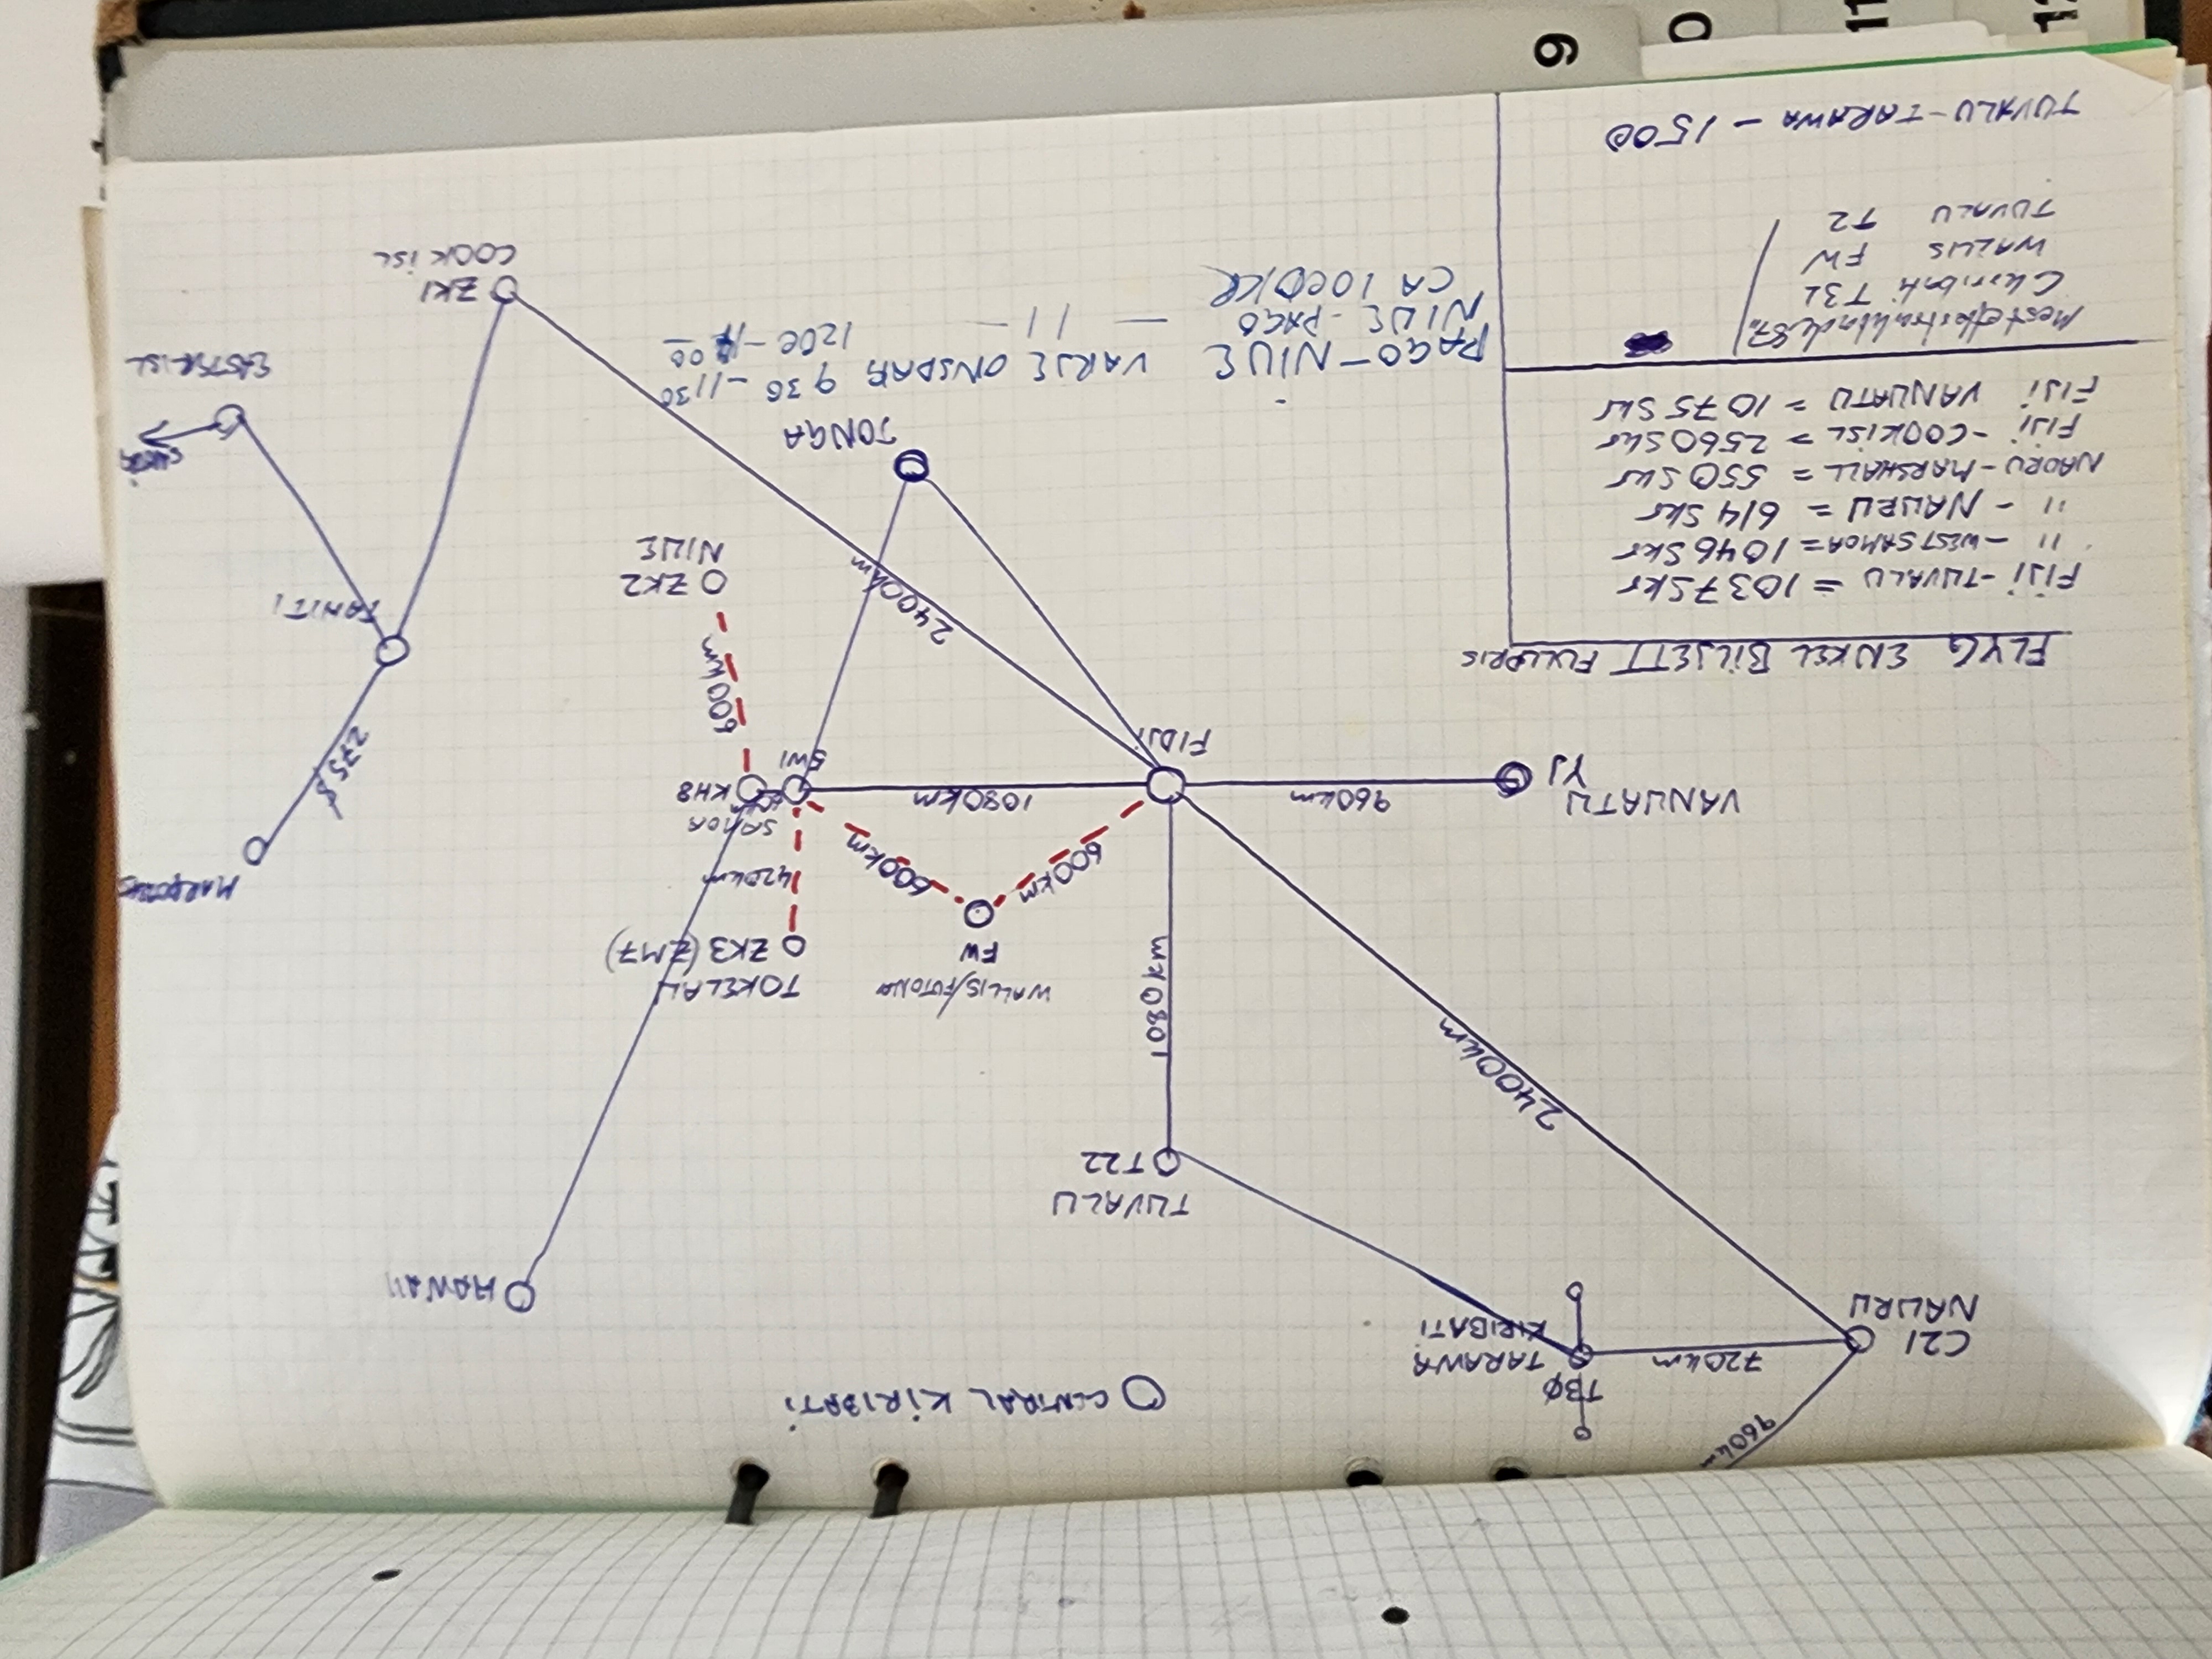 960km
CENTRAL KIRIBATI
TBØ
C21
NAURU
720km
TARAWA
KIRIBATI
HAWAII
TUVALU
T22
2400km
1080km
WALLIS/FUTONA
FW
TOKELAU
ZK3 (ZM7)
MARQUESAS
600km
600km
420km
VANUATU
YJ
960km
FIDJI
1080km
SAMOA
5W1
KH8
275$
600km
TAHITI
2400km
ZK2
NIUE
TONGA
EASTER ISL
ZK1
COOK ISL
FLYG ENKEL BILJETT FULLPRIS
FIJI - TUVALU = 1037 Skr
" - WESTSAMOA = 1046 Skr
" - NAURU = 614 Skr
NAORU - MARSHALL = 550 Skr
FIJI - COOKISL = 2560 Skr
FIJI VANUATU = 1075 Skr
PAGO-NIUE VARJE ONSDAG 930-1130
NIUE-PAGO — 11 — 1200-
CA 1000KR
T31
WALLIS FW
TUVALU T2
TUVALU-TARAWA - 1500
9
0
11